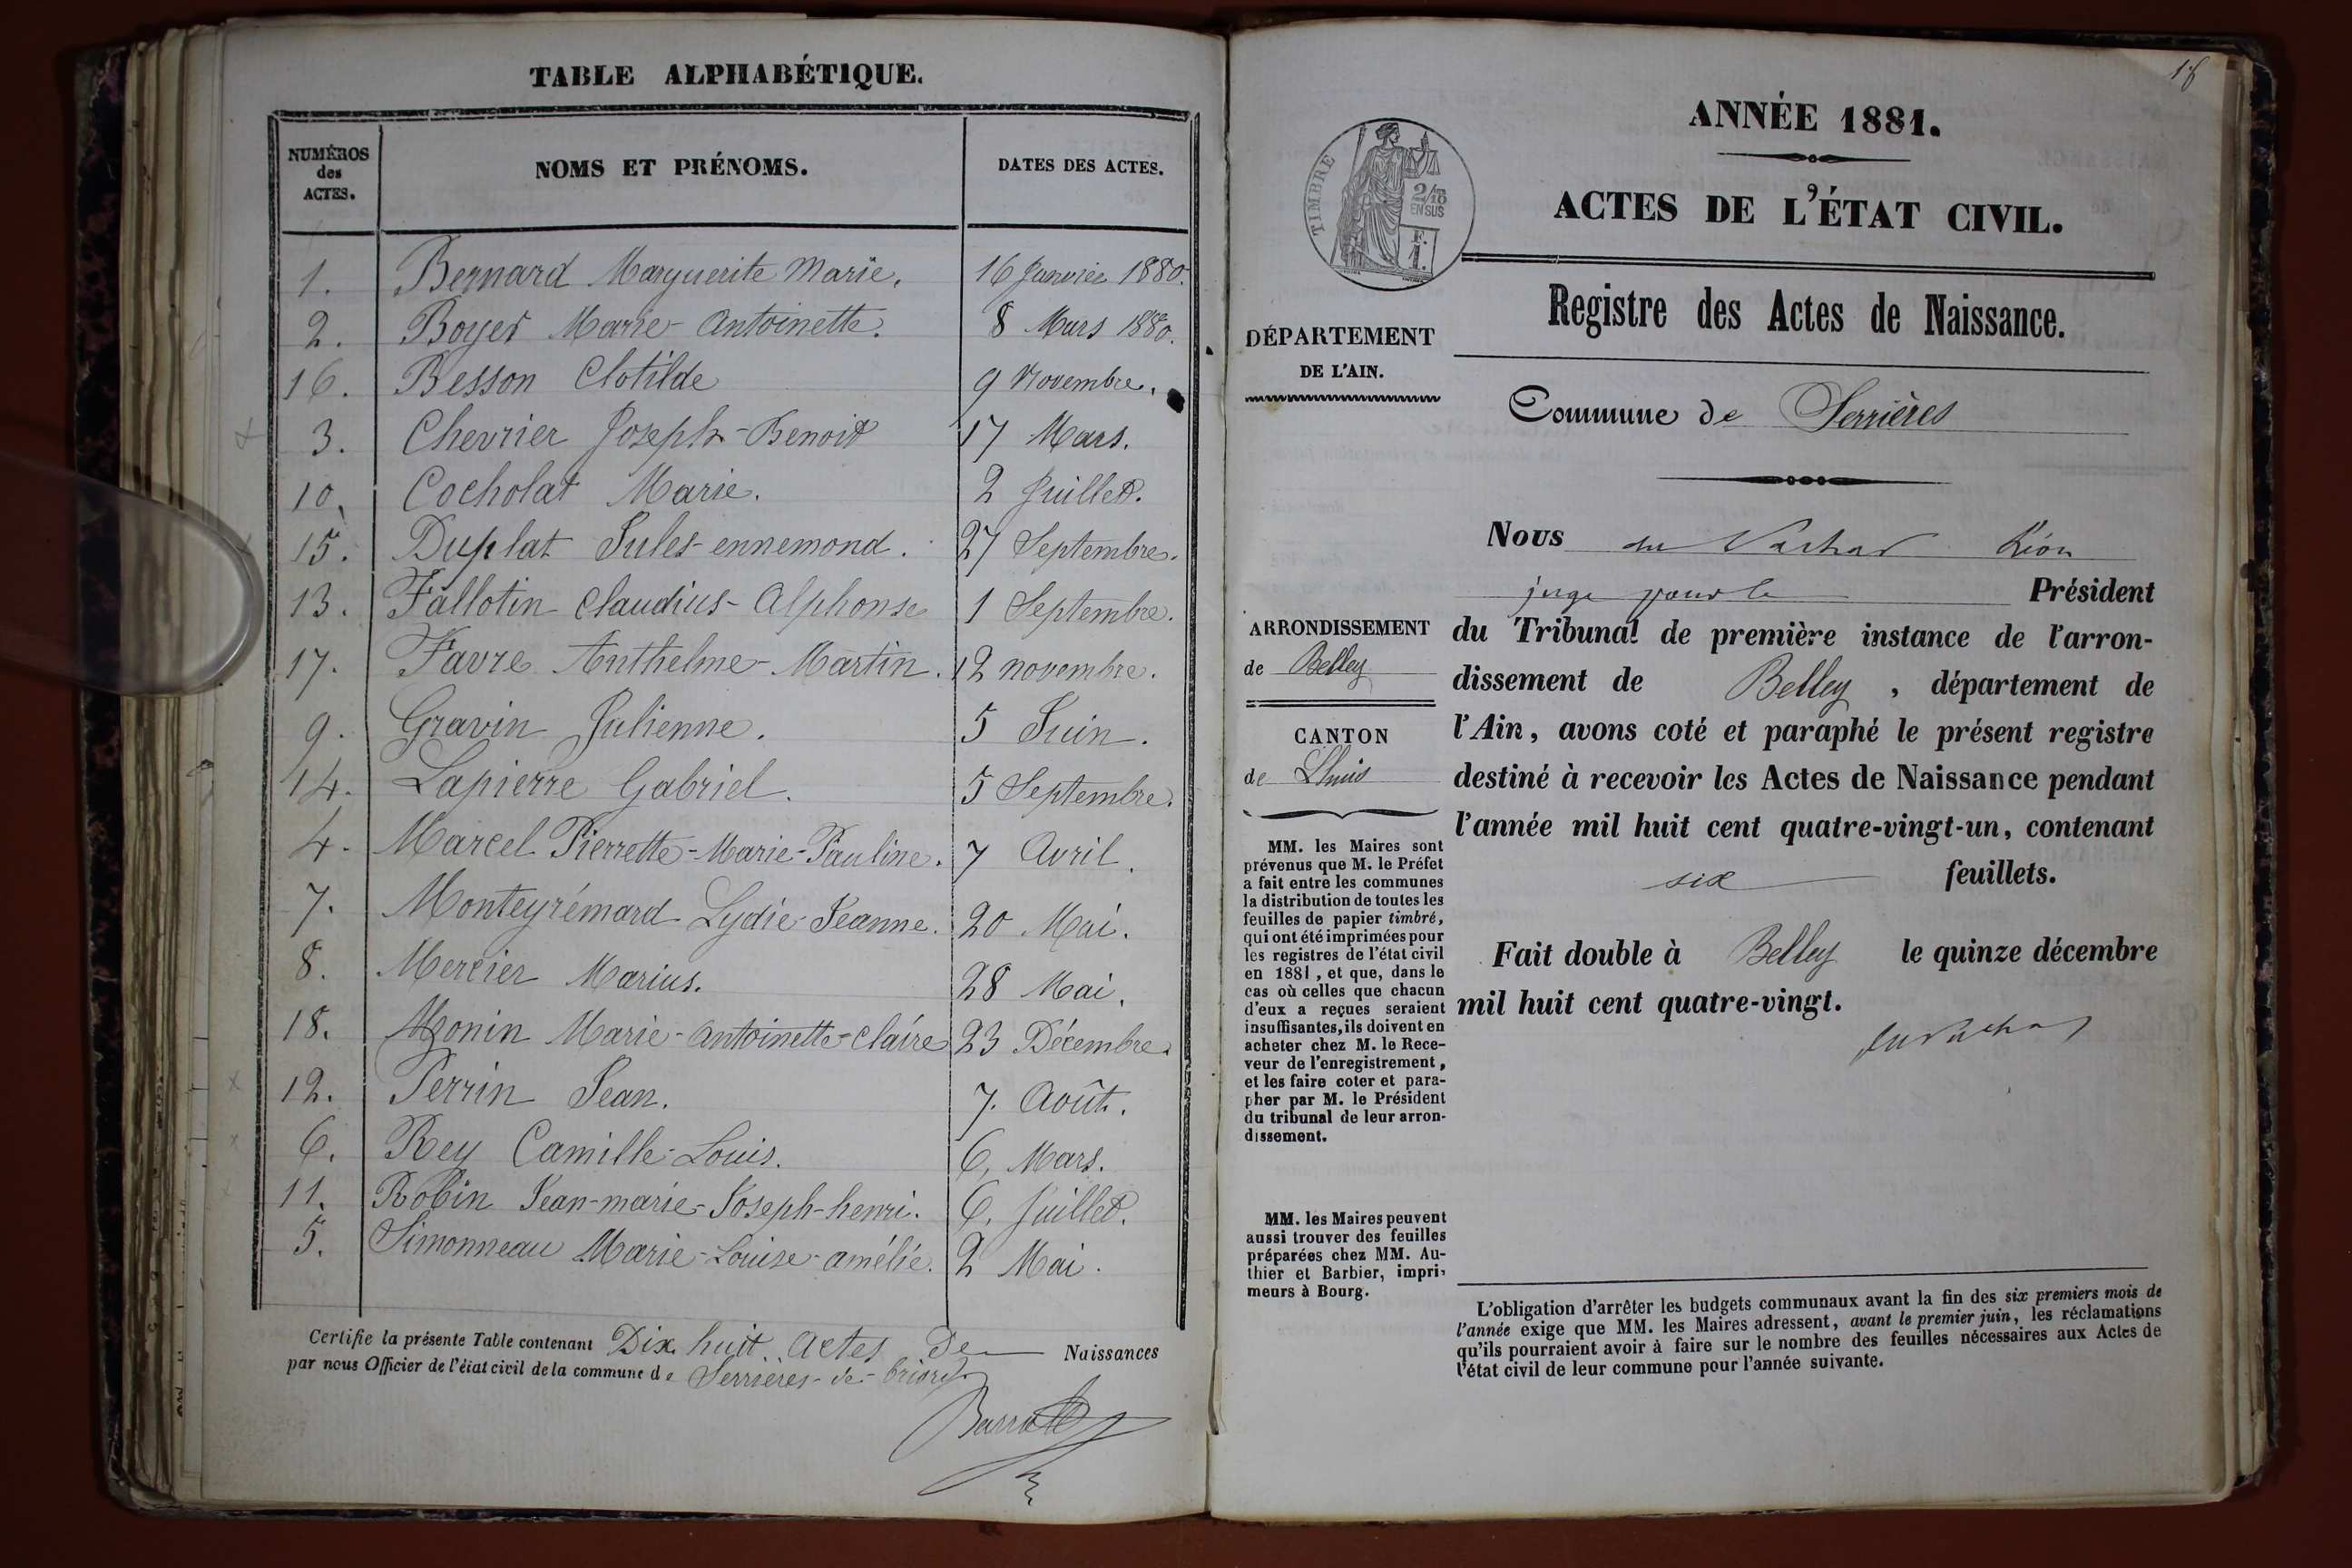 TABLE ALPHABÉTIQUE.
NUMÉROS des ACTES. NOMS ET PRÉNOMS. DATES DES ACTES.
1. Bernard Marguerite Marie. 16 Janvier 1880.
2. Boyer Marie-Antoinette. 8 Mars 1880.
16. Besson Clotilde 9 Novembre.
3. Chevrier Joseph-Benoit 17 Mars.
10. Cocholat Marie. 2 Juillet.
15. Duplat Jules-ennemond. 27 Septembre.
13. Fallotin Claudius-Alphonse 1 Septembre.
17. Favre Anthelme-Martin. 12 novembre.
9. Gravin Julienne. 5 Juin.
14. Lapierre Gabriel. 5 Septembre.
4. Marcel Pierrette-Marie-Pauline. 7 Avril.
7. Monteyrémard Lydie-Jeanne. 20 Mai.
8. Mercier Marius. 28 Mai.
18. Monin Marie-Antoinette-Claire 23 Décembre.
12. Perrin Jean. 7. Août.
6. Rey Camille-Louis. 6, Mars.
11. Robin Jean-marie-Joseph-henri. 6. Juillet.
5. Simonneau Marie-Louise-amélie. 2 Mai.
Certifie la présente Table contenant Dix huit Actes De Naissances
par nous Officier de l'état civil de la commune de Serrières-de-briord.
18
ANNÉE 1881.
ACTES DE L'ÉTAT CIVIL.
TIMBRE
2/10
EN SUS
F.
1.
Registre des Actes de Naissance.
DÉPARTEMENT
DE L'AIN.
Commune de Serrières
Nous du Vachat Léon
juge pour le Président
du Tribunal de première instance de l'arron-
dissement de Belley, département de
l'Ain, avons coté et paraphé le présent registre
destiné à recevoir les Actes de Naissance pendant
l'année mil huit cent quatre-vingt-un, contenant
six feuillets.
Fait double à Belley le quinze décembre
mil huit cent quatre-vingt.
du Vachat
ARRONDISSEMENT
de Belley
CANTON
de Lhuis
MM. les Maires sont
prévenus que M. le Préfet
a fait entre les communes
la distribution de toutes les
feuilles de papier timbré,
qui ont été imprimées pour
les registres de l'état civil
en 1881, et que, dans le
cas où celles que chacun
d'eux a reçues seraient
insuffisantes, ils doivent en
acheter chez M. le Rece-
veur de l'enregistrement,
et les faire coter et para-
pher par M. le Président
du tribunal de leur arron-
dissement.
MM. les Maires peuvent
aussi trouver des feuilles
préparées chez MM. Au-
thier et Barbier, impri-
meurs à Bourg.
L'obligation d'arrêter les budgets communaux avant la fin des six premiers mois de
l'année exige que MM. les Maires adressent, avant le premier juin, les réclamations
qu'ils pourraient avoir à faire sur le nombre des feuilles nécessaires aux Actes de
l'état civil de leur commune pour l'année suivante.